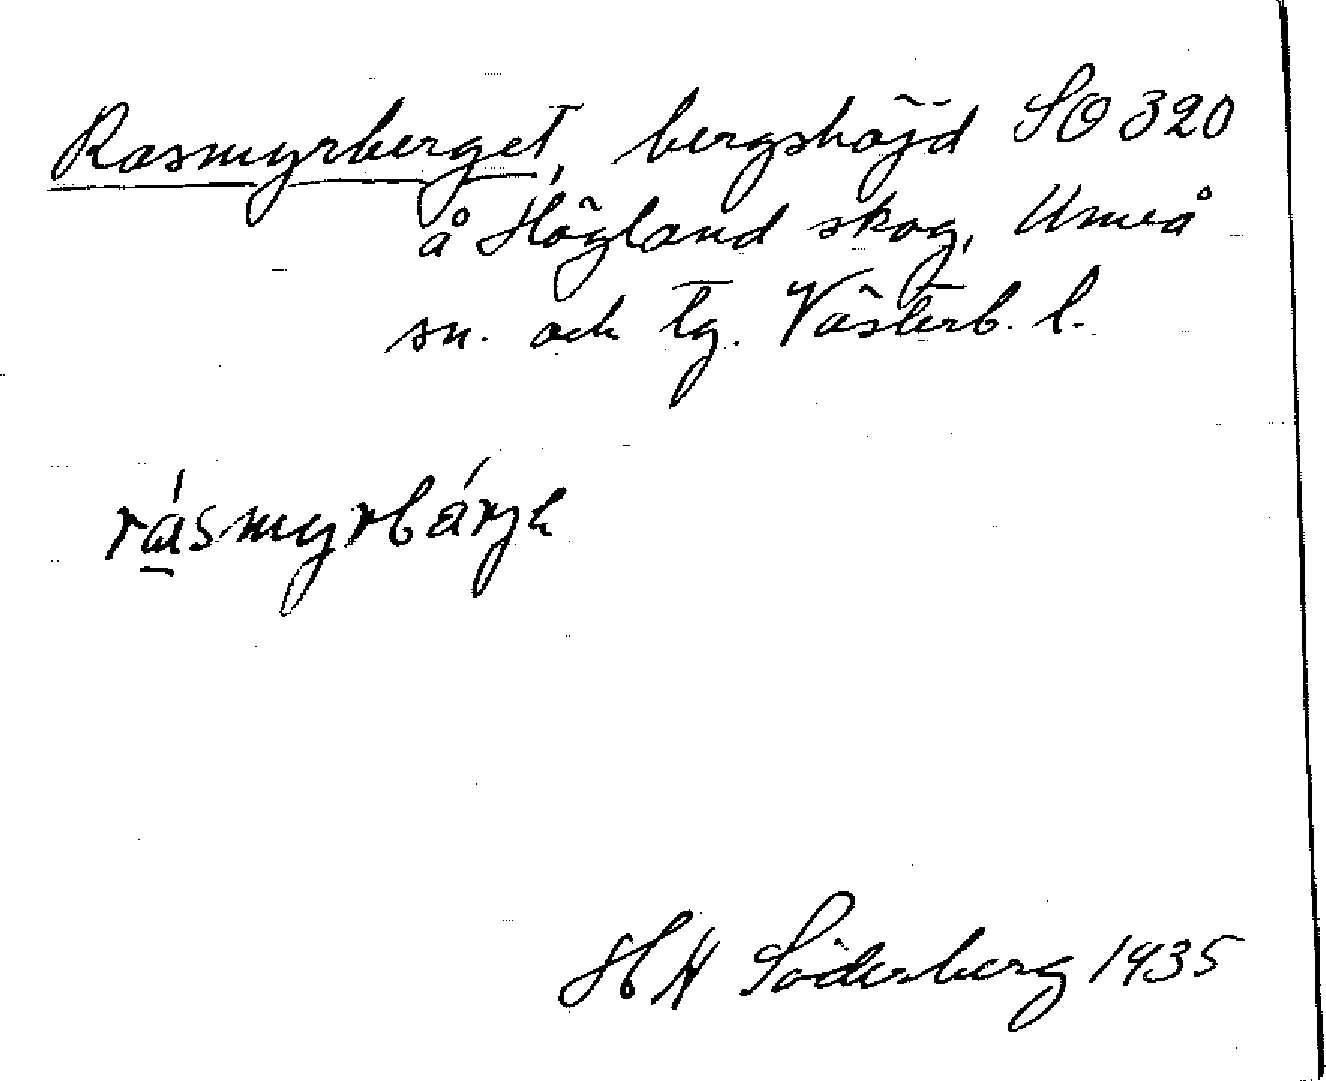 Rasmyrberget, bergshöjd SO 320
å Högland skog, Umeå
sn. och tg. Västerb. l.
rásmyrbárjə
HN Söderberg 1935